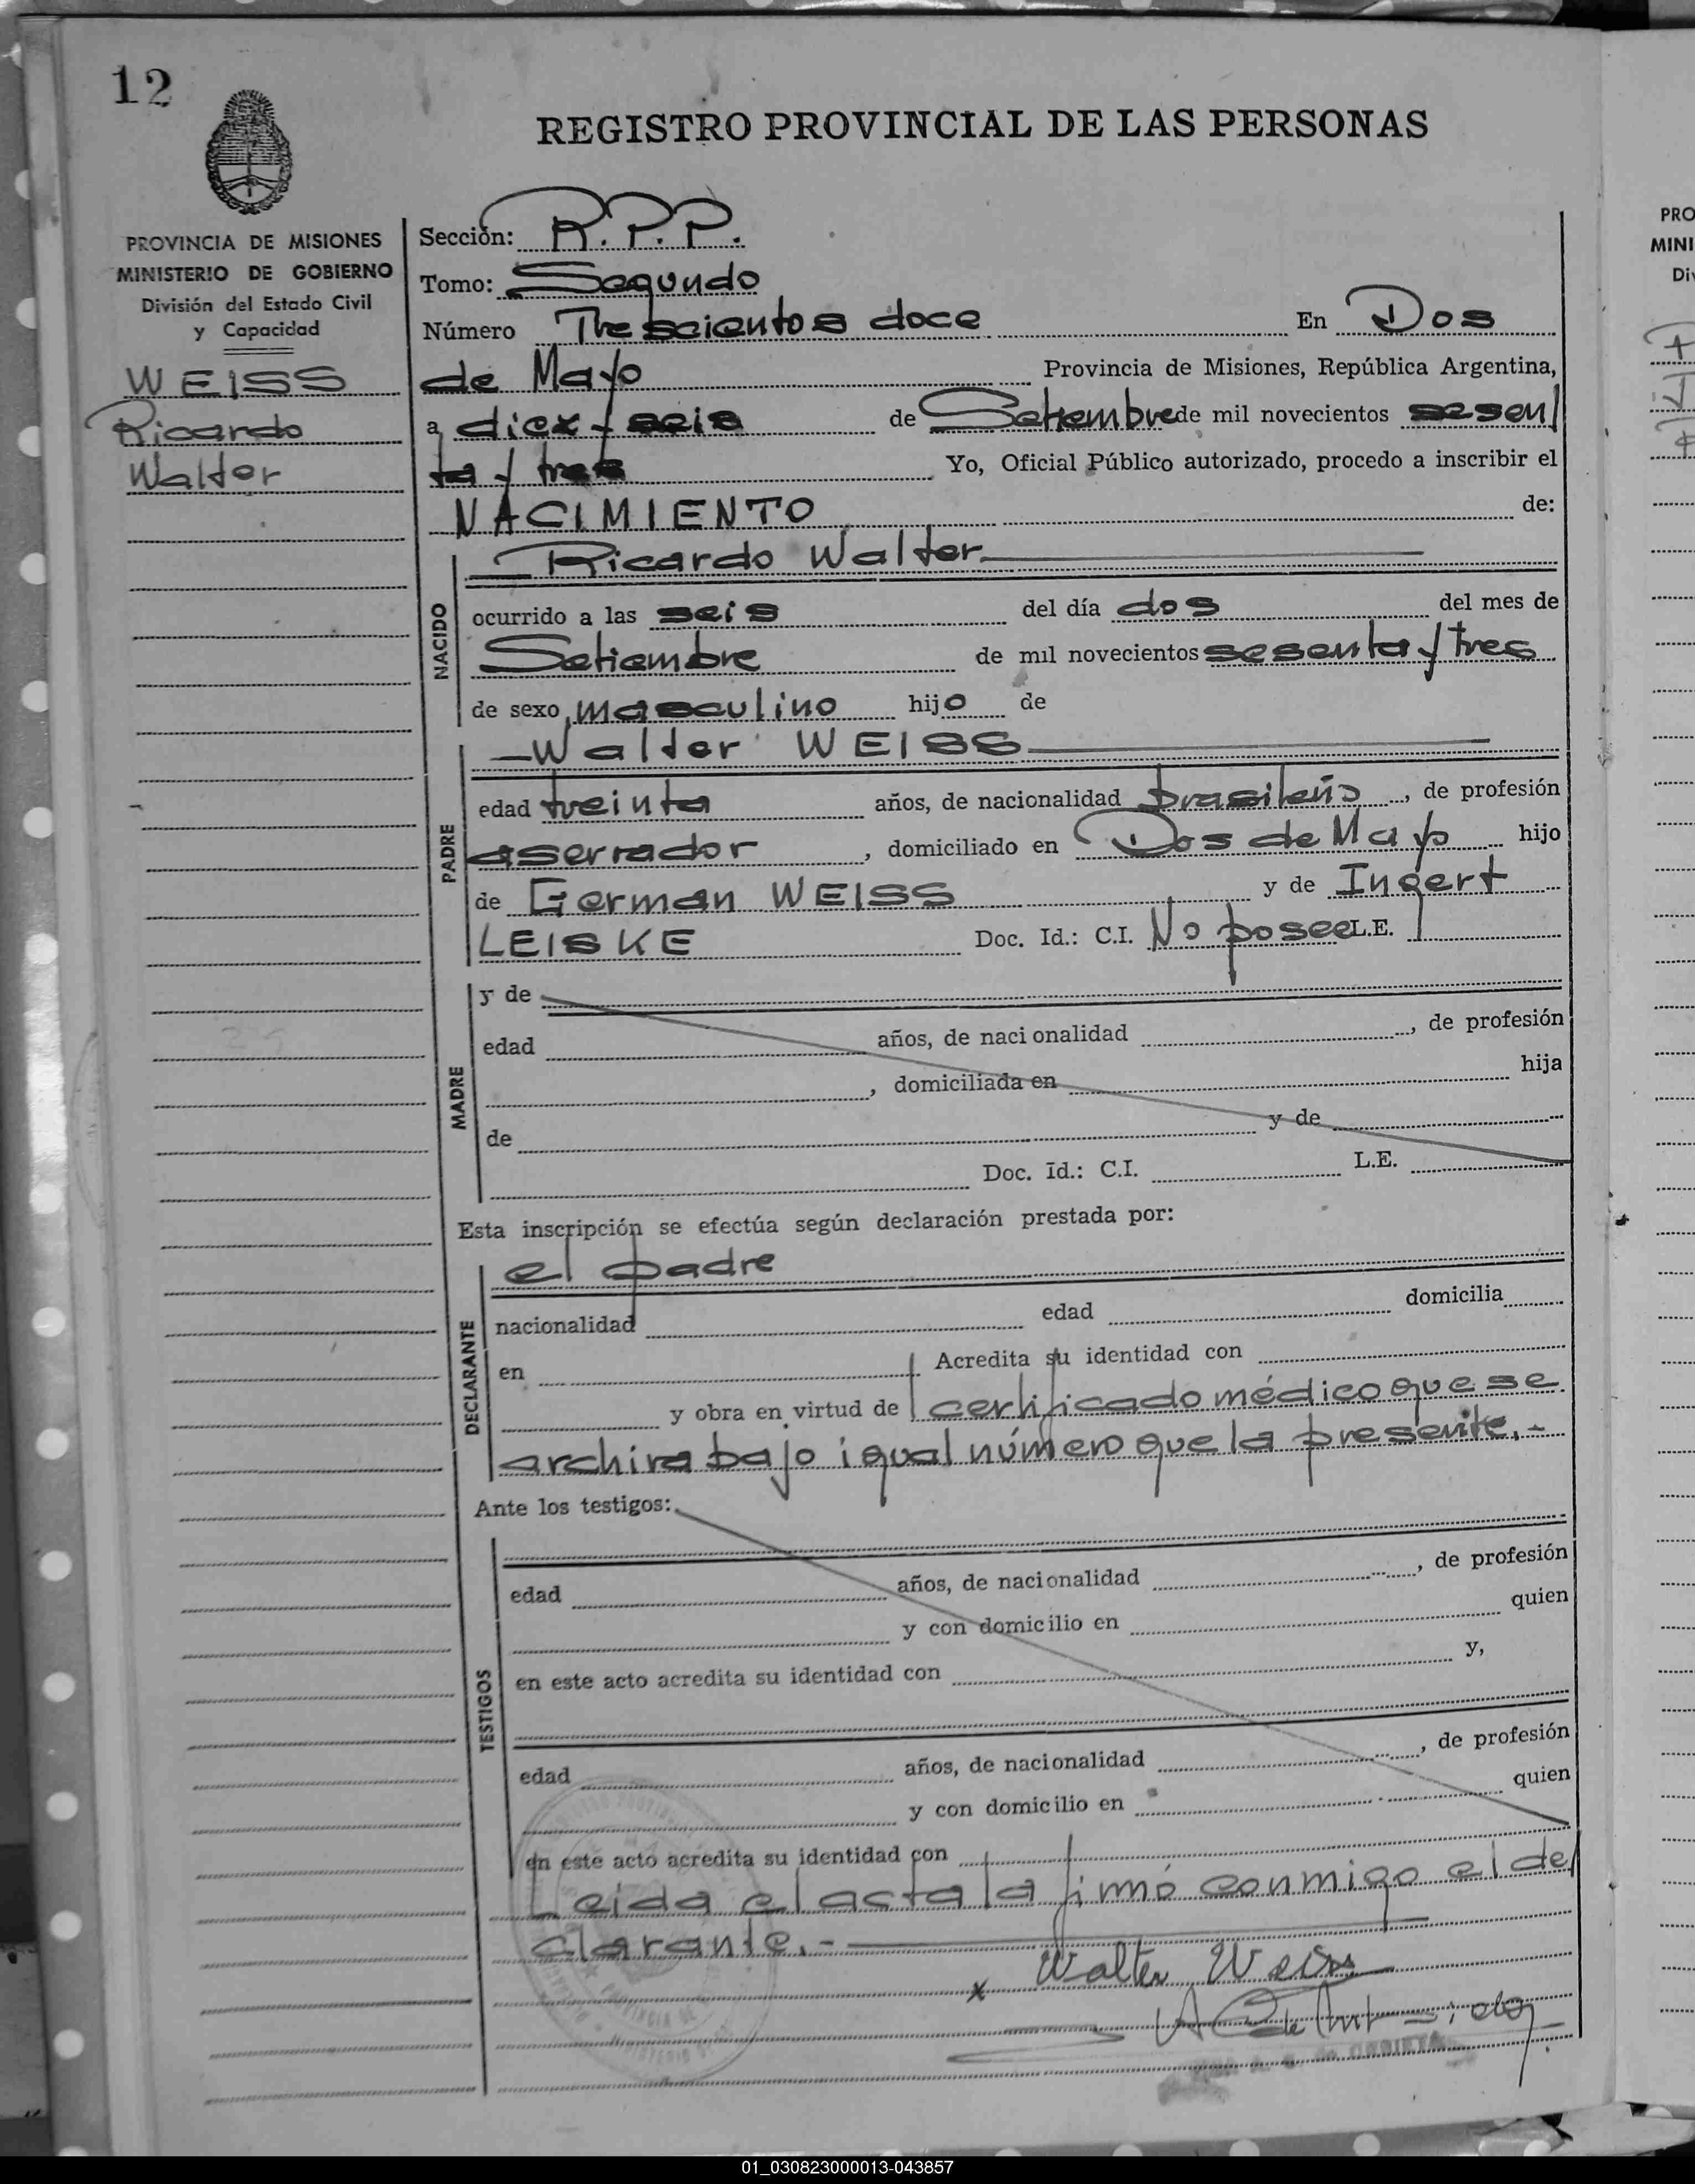 12
REGISTRO PROVINCIAL DE LAS PERSONAS
PROVINCIA DE MISIONES
MINISTERIO DE GOBIERNO
División del Estado Civil
y Capacidad
WEISS
Ricardo
Walter
Sección: R.P.P.
Tomo: Segundo
Número Trescientos doce En Dos
de Mayo Provincia de Misiones, República Argentina,
a diez y seis de Setiembre de mil novecientos sesen
ta y tres Yo, Oficial Público autorizado, procedo a inscribir el
NACIMIENTO de:
Ricardo Walter
NACIDO
ocurrido a las seis del día dos del mes de
Setiembre de mil novecientos sesenta y tres
de sexo masculino hijo de
Walter WEISS
PADRE
edad treinta años, de nacionalidad brasileño, de profesión
aserrador, domiciliado en Dos de Mayo hijo
de German WEISS y de Ingert
LEISKE Doc. Id.: C.I. No posee L.E.
MADRE
y de
edad años, de nacionalidad , de profesión
, domiciliada en hija
de y de
Doc. Id.: C.I. L.E.
Esta inscripción se efectúa según declaración prestada por:
el padre
DECLARANTE
nacionalidad edad domicilia
en Acredita su identidad con
y obra en virtud de certificado médico que se
archiva bajo igual número que la presente.-
Ante los testigos:
TESTIGOS
edad años, de nacionalidad , de profesión
y con domicilio en quien
en este acto acredita su identidad con y,
edad años, de nacionalidad , de profesión
y con domicilio en quien
en este acto acredita su identidad con
Leida el acta la firmó conmigo el de
clarante.-
x Walter Weiss
PRO
MINI
Di
01_030823000013-043857